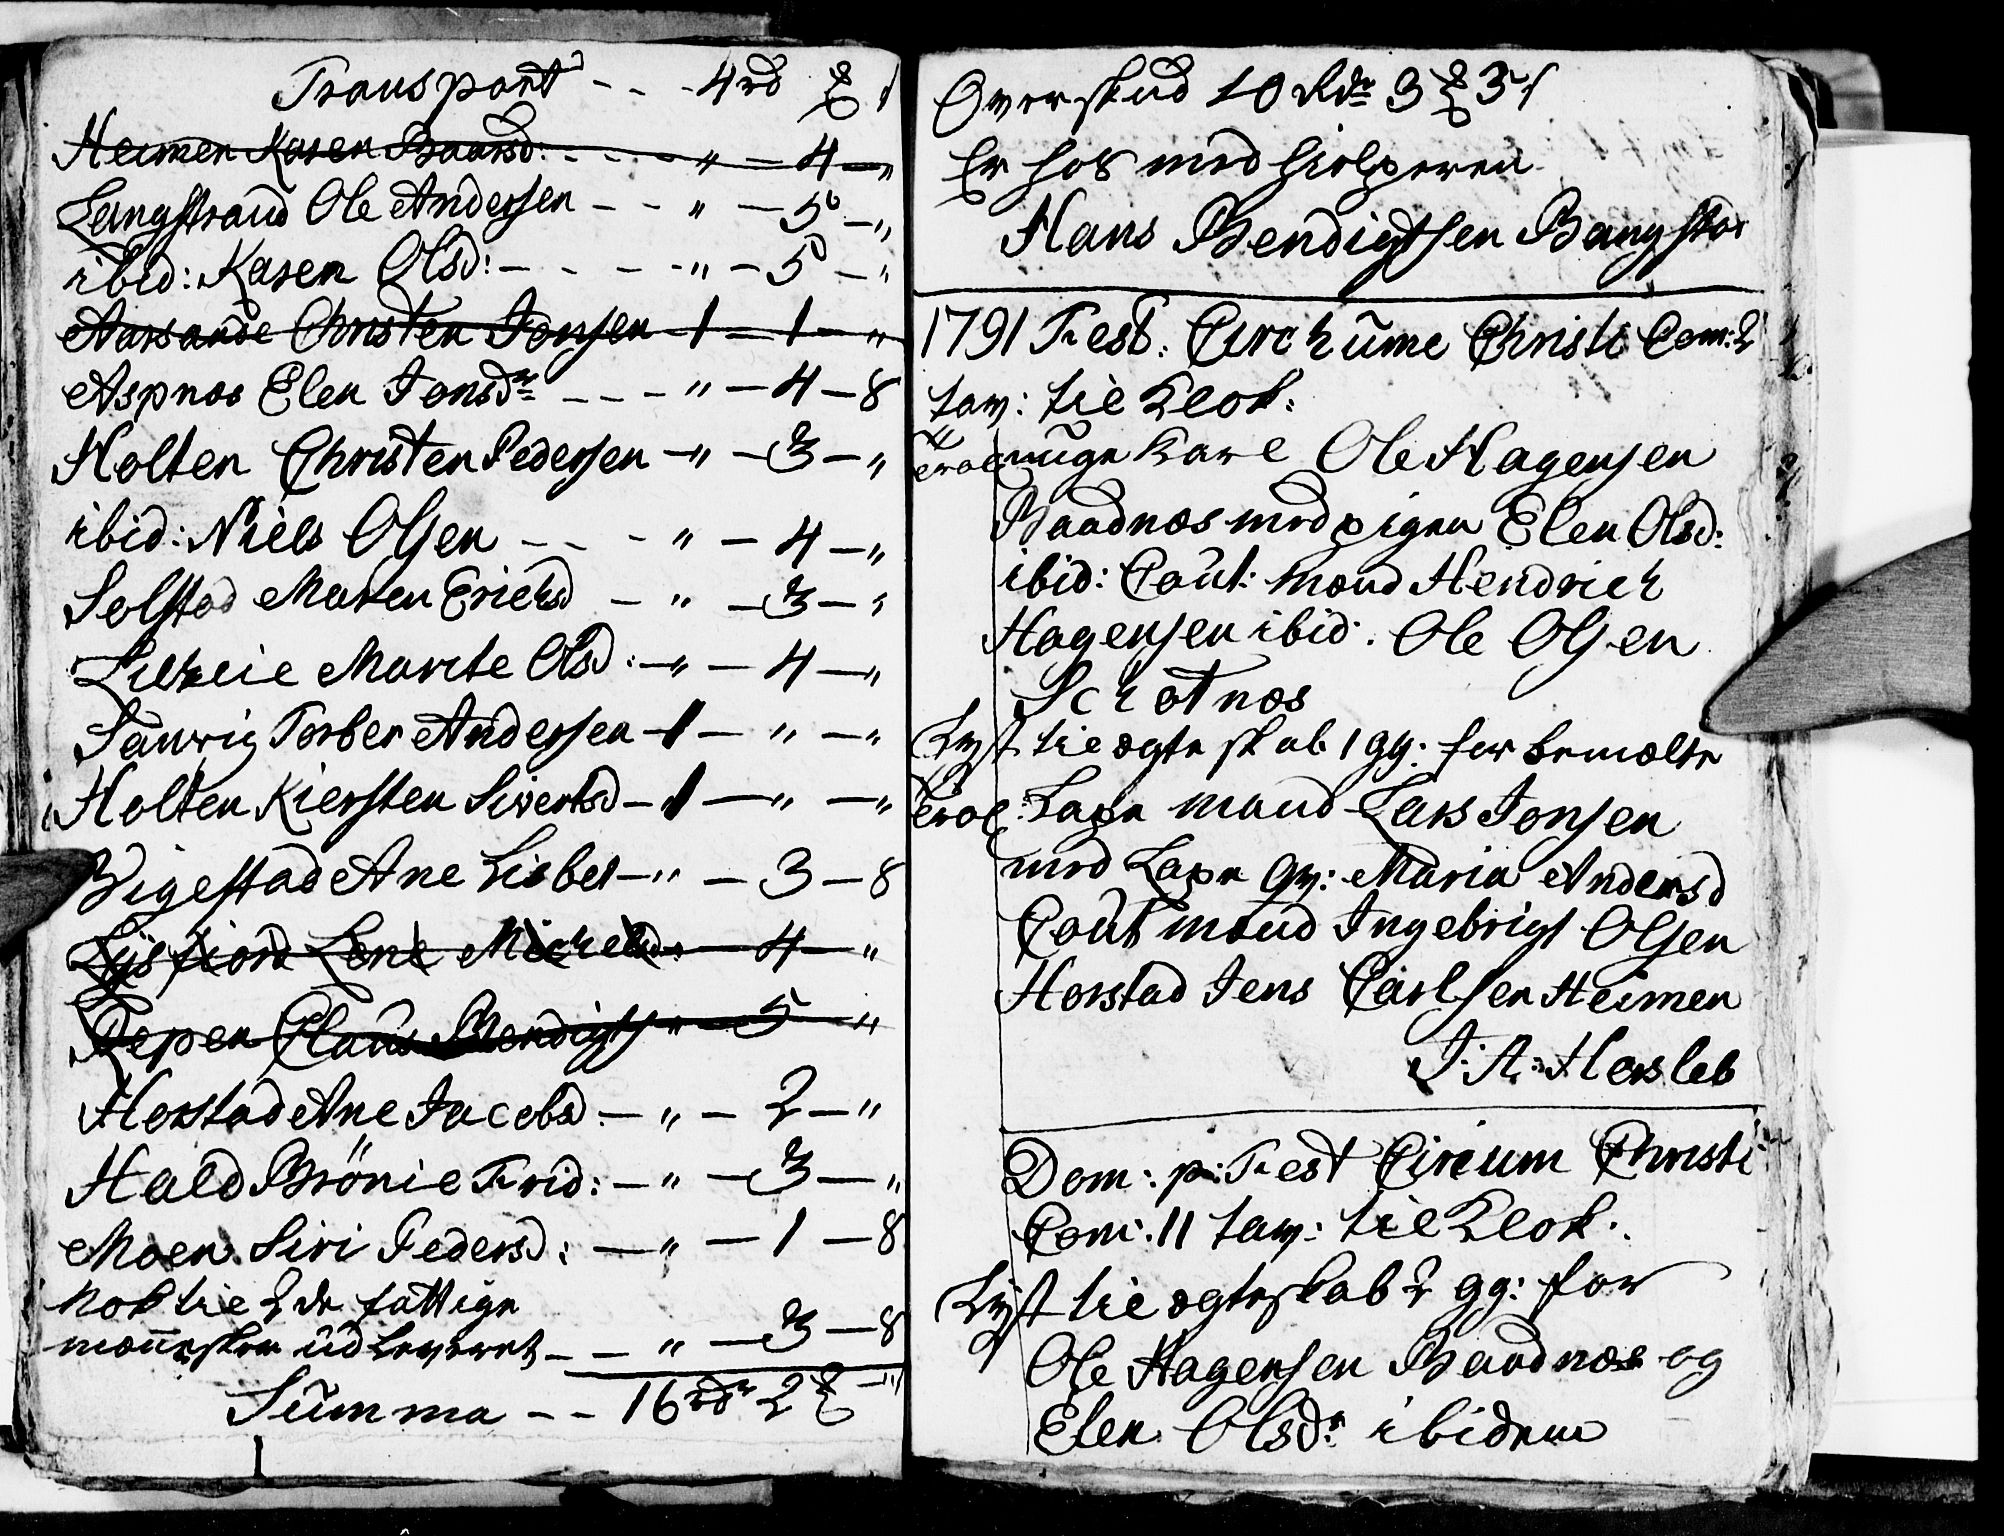 Transport - - - 4 rd
Heimen Karen Baarsd: - - - " - 4 - "
Langstrand Ole Andersen - - " - 5 - "
ibid: Karen Olsd: - - - - " - 5 - "
Aarsande Christen Jonsen 1 - 1 - "
Aspnæs Elen Jonsdr - - - " - 4 - 8
Holten Christen Pedersen - " - 3 - "
ibid: Niels Olsen - - - " - 4 - "
Solstad Maren Erichsd - " - 3 - "
Marite Olsd: - " - 4 - "
Torber Andersen - 1 - " - "
Holten Kiersten Sivertsd - 1 - " - "
Vigestad Ane Lisbet - " - 3 - 8
Lysfiord Lene Michelsd: - 4 - "
Repen Claus Bendigts " - 5 "
Horstad Ane Jacobsd: - " - 2 - "
Hald Brönie Frid: - " - 3 - "
Moen Siri Pedersd: - " - 1 - 8
Nok til 2de fattige
mennesker üdleveret - - " - 3 - 8
Sümma - - 16 rdr 2 - "
Overskud 10 Rdr 3 3 s
Er hos medhielperen
Hans Bendigtsen Bangstad
1791 Fest. Circküme Christi Com: 2
tav: til Klok:
Trol: unge Karl Ole Hagensen
Baadnæs med pigen Elen Olsd:
ibid: Caut: mænd Hendrich
Hagensen ibid. Ole Olsen
Schotnæs
Lyst til ægteskab 1 gg: for bemælte
Trol: Lape mand Lars Jonsen
med Lape qv: Maria Andersd
Caut mænd Ingebrigt Olsen
Horstad Jens Carlsen Heimen
J: A: Hersleb
Dom: p: Fest Circum Christi
Com: 11 tav: til Klok:
Lyst til ægteskab 2 gg: for
Ole Hagensen Baadnæs og
Elen Olsdr ibidem